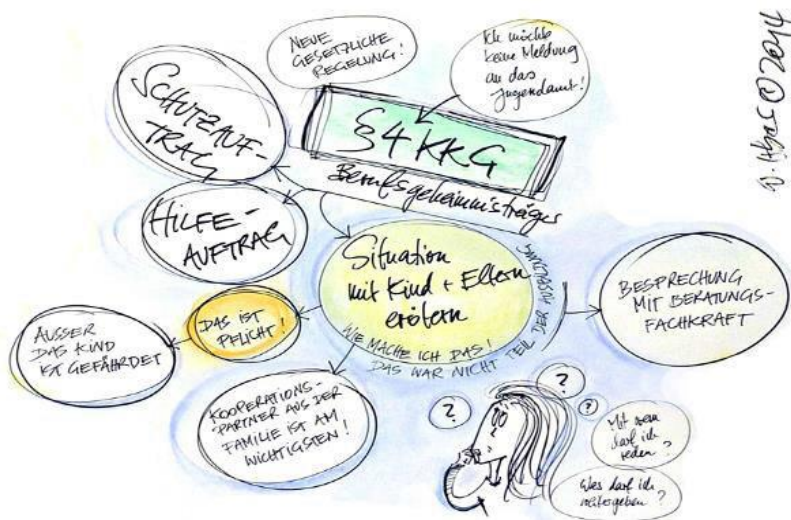 NEUE
GESETZLICHE
REGELUNG!
Ich möchte
keine Meldung
an das
Jugendamt!
SCHUTZAUF-
TRAG
§4 KKG
Berufsgeheimnisträger
HILFE-
AUFTRAG
Situation
mit Kind + Eltern
erötern
WIE MACHE ICH DAS!
DAS WAR NICHT TEIL DER
BESPRECHUNG
MIT BERATUNGS-
FACHKRAFT
DAS IST
PFLICHT!
AUSSER
DAS KIND
IST GEFÄHRDET
KOOPERATIONS-
PARTNER AUS DER
FAMILIE IST AM
WICHTIGSTEN!
?
?
?
Mit wem
darf ich
reden?
Was darf ich
weitergeben?
© 2014